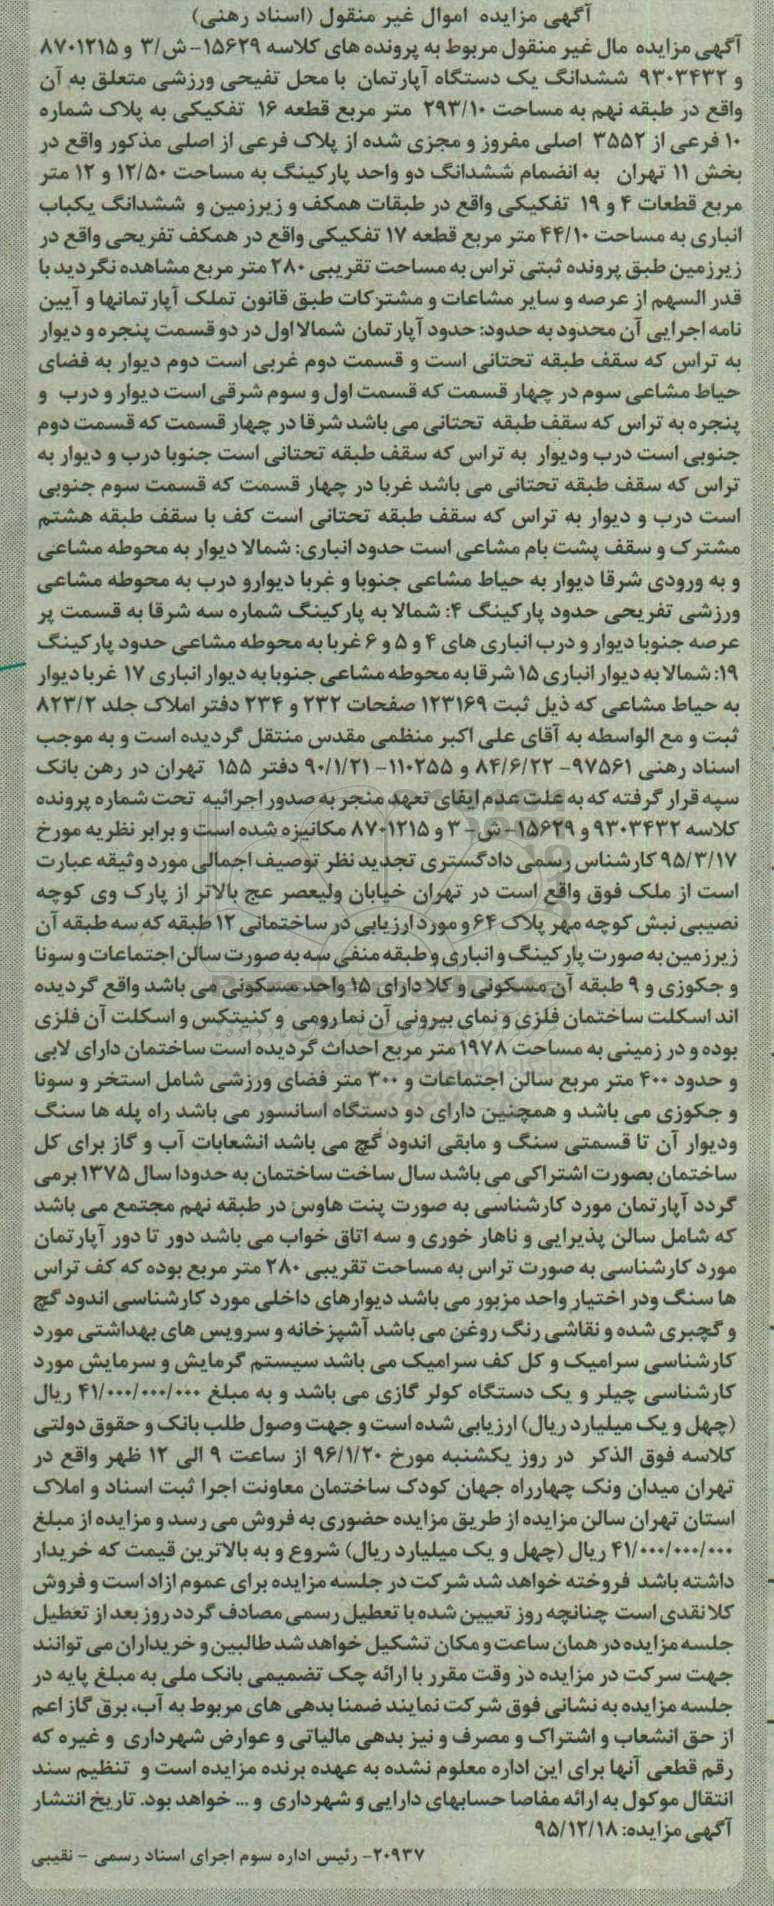 آگهی مزایده اموال غیر منقول (اسناد رهنی)
آگهی مزایده مال غیر منقول مربوط به پرونده های کلاسه ۱۵۶۲۹- ش/۳ و ۸۷۰۱۲۱۵
و ۹۳۰۳۴۳۲ ششدانگ یک دستگاه آپارتمان با محل تفیحی ورزشی متعلق به آن
واقع در طبقه نهم به مساحت ۲۹۳/۱۰ متر مربع قطعه ۱۶ تفکیکی به پلاک شماره
۱۰ فرعی از ۳۵۵۲ اصلی مفروز و مجزی شده از پلاک فرعی از اصلی مذکور واقع در
بخش ۱۱ تهران به انضمام ششدانگ دو واحد پارکینگ به مساحت ۱۲/۵۰ و ۱۲ متر
مربع قطعات ۴ و ۱۹ تفکیکی واقع در طبقات همکف و زیرزمین و ششدانگ یکباب
انباری به مساحت ۴۴/۱۰ متر مربع قطعه ۱۷ تفکیکی واقع در همکف تفریحی واقع در
زیرزمین طبق پرونده ثبتی تراس به مساحت تقریبی ۲۸۰ متر مربع مشاهده نگردید با
قدر السهم از عرصه و سایر مشاعات و مشترکات طبق قانون تملک آپارتمانها و آیین
نامه اجرایی آن محدود به حدود: حدود آپارتمان شمالا اول در دو قسمت پنجره و دیوار
به تراس که سقف طبقه تحتانی است و قسمت دوم غربی است دوم دیوار به فضای
حیاط مشاعی سوم در چهار قسمت که قسمت اول و سوم شرقی است دیوار و درب و
پنجره به تراس که سقف طبقه تحتانی می باشد شرقا در چهار قسمت که قسمت دوم
جنوبی است درب ودیوار به تراس که سقف طبقه تحتانی است جنوبا درب و دیوار به
تراس که سقف طبقه تحتانی می باشد غربا در چهار قسمت که قسمت سوم جنوبی
است درب و دیوار به تراس که سقف طبقه تحتانی است کف با سقف طبقه هشتم
مشترک و سقف پشت بام مشاعی است حدود انباری: شمالا دیوار به محوطه مشاعی
و به ورودی شرقا دیوار به حیاط مشاعی جنوبا و غربا دیوارو درب به محوطه مشاعی
ورزشی تفریحی حدود پارکینگ ۴: شمالا به پارکینگ شماره سه شرقا به قسمت پر
عرصه جنوبا دیوار و درب انباری های ۴ و ۵ و ۶ غربا به محوطه مشاعی حدود پارکینگ
۱۹: شمالا به دیوار انباری ۱۵ شرقا به محوطه مشاعی جنوبا به دیوار انباری ۱۷ غربا دیوار
به حیاط مشاعی که ذیل ثبت ۱۲۳۱۶۹ صفحات ۲۳۲ و ۲۳۴ دفتر املاک جلد ۸۲۳/۲
ثبت و مع الواسطه به آقای علی اکبر منظمی مقدس منتقل گردیده است و به موجب
اسناد رهنی ۹۷۵۶۱- ۸۴/۶/۲۲ و ۱۱۰۲۵۵- ۹۰/۱/۲۱ دفتر ۱۵۵ تهران در رهن بانک
سپه قرار گرفته که به علت عدم ایفای تعهد منجر به صدور اجرائیه تحت شماره پرونده
کلاسه ۹۳۰۳۴۳۲ و ۱۵۶۲۹- ش- ۳ و ۸۷۰۱۲۱۵ مکانیزه شده است و برابر نظریه مورخ
۹۵/۳/۱۷ کارشناس رسمی دادگستری تجدید نظر توصیف اجمالی مورد وثیقه عبارت
است از ملک فوق واقع است در تهران خیابان ولیعصر عج بالاتر از پارک وی کوچه
نصیبی نبش کوچه مهر پلاک ۶۴ و مورد ارزیابی در ساختمانی ۱۲ طبقه که سه طبقه آن
زیرزمین به صورت پارکینگ و انباری و طبقه منفی سه به صورت سالن اجتماعات و سونا
و جکوزی و ۹ طبقه آن مسکونی و کلا دارای ۱۵ واحد مسکونی می باشد واقع گردیده
اند اسکلت ساختمان فلزی و نمای بیرونی آن نما رومی و کنیتکس و اسکلت آن فلزی
بوده و در زمینی به مساحت ۱۹۷۸ متر مربع احداث گردیده است ساختمان دارای لابی
و حدود ۴۰۰ متر مربع سالن اجتماعات و ۳۰۰ متر فضای ورزشی شامل استخر و سونا
و جکوزی می باشد و همچنین دارای دو دستگاه اسانسور می باشد راه پله ها سنگ
ودیوار آن تا قسمتی سنگ و مابقی اندود گچ می باشد انشعابات آب و گاز برای کل
ساختمان بصورت اشتراکی می باشد سال ساخت ساختمان به حدودا سال ۱۳۷۵ برمی
گردد آپارتمان مورد کارشناسی به صورت پنت هاوس در طبقه نهم مجتمع می باشد
که شامل سالن پذیرایی و ناهار خوری و سه اتاق خواب می باشد دور تا دور آپارتمان
مورد کارشناسی به صورت تراس به مساحت تقریبی ۲۸۰ متر مربع بوده که کف تراس
ها سنگ ودر اختیار واحد مزبور می باشد دیوارهای داخلی مورد کارشناسی اندود گچ
و گچبری شده و نقاشی رنگ روغن می باشد آشپزخانه و سرویس های بهداشتی مورد
کارشناسی سرامیک و کل کف سرامیک می باشد سیستم گرمایش و سرمایش مورد
کارشناسی چیلر و یک دستگاه کولر گازی می باشد و به مبلغ ۴۱/۰۰۰/۰۰۰/۰۰۰ ریال
(چهل و یک میلیارد ریال) ارزیابی شده است و جهت وصول طلب بانک و حقوق دولتی
کلاسه فوق الذکر در روز یکشنبه مورخ ۹۶/۱/۲۰ از ساعت ۹ الی ۱۲ ظهر واقع در
تهران میدان ونک چهارراه جهان کودک ساختمان معاونت اجرا ثبت اسناد و املاک
استان تهران سالن مزایده از طریق مزایده حضوری به فروش می رسد و مزایده از مبلغ
۴۱/۰۰۰/۰۰۰/۰۰۰ ریال (چهل و یک میلیارد ریال) شروع و به بالاترین قیمت که خریدار
داشته باشد فروخته خواهد شد شرکت در جلسه مزایده برای عموم ازاد است و فروش
کلا نقدی است چنانچه روز تعیین شده با تعطیل رسمی مصادف گردد روز بعد از تعطیل
جلسه مزایده در همان ساعت و مکان تشکیل خواهد شد طالبین و خریداران می توانند
جهت سرکت در مزایده در وقت مقرر با ارائه چک تضمیمی بانک ملی به مبلغ پایه در
جلسه مزایده به نشانی فوق شرکت نمایند ضمنا بدهی های مربوط به آب، برق گاز اعم
از حق انشعاب و اشتراک و مصرف و نیز بدهی مالیاتی و عوارض شهرداری و غیره که
رقم قطعی آنها برای این اداره معلوم نشده به عهده برنده مزایده است و تنظیم سند
انتقال موکول به ارائه مفاصا حسابهای دارایی و شهرداری و ... خواهد بود. تاریخ انتشار
آگهی مزایده: ۹۵/۱۲/۱۸
۲۰۹۳۷- رئیس اداره سوم اجرای اسناد رسمی - نقیبی